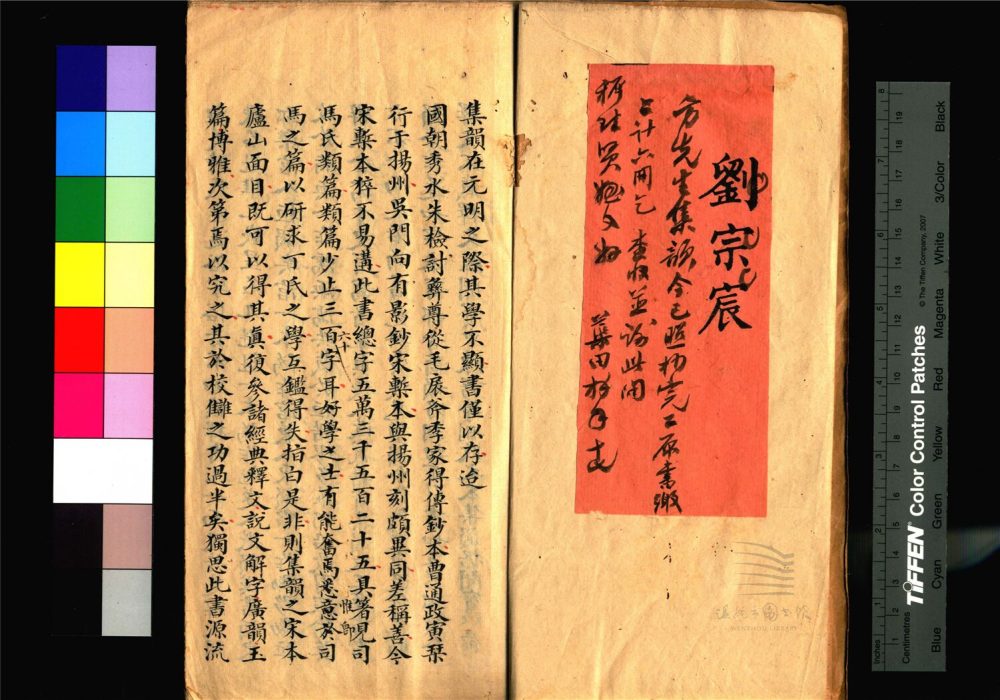 劉宗宸
方先生集韻今已照抄完工原書繳
上計六開乞 查收並此問
集韻在元明之際其學不顯書僅以存迨
國朝秀水朱檢討彝尊從毛扆斧季家得傳鈔本曹通政寅栞
行于揚州吳門尚有影鈔宋槧本與揚州刻頗異同差稱善今
宋槧本猝不易遘此書總字五萬三千五百二十五具箸見司
馬氏類篇類篇少止三百六十字耳好學之士有能奮焉悉意於司
馬之篇以研求丁氏之學互鑑得失掊白是非則集韻之宋本
廬山面目既可以得其眞復參諸經典釋文説文解字廣韻玉
篇博雅次第焉以究之其於校讎之功過半矣獨思此書源流
温州市圖書館
WENZHOU LIBRARY
TIFFEN Color Control Patches
© The Tiffen Company, 2007
Inches
Centimetres
Blue Cyan Green Yellow Red Magenta White 3/Color Black